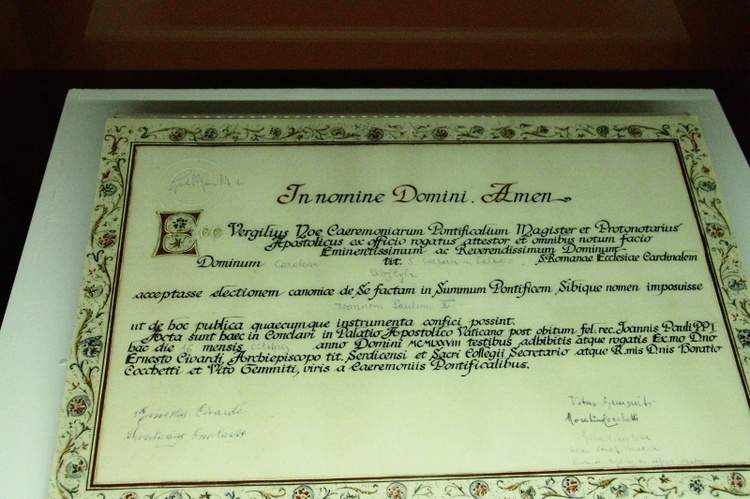 In nomine Domini. Amen
Ego Vergilius Noe Caeremoniarum Pontificalium Magister et Protonotarius
Apostolicus ex officio rogatus attestor et omnibus notum facio
Eminentissimum ac Reverendissimum Dominum
Dominum Carolum tit. S. S. Romanae Ecclesiae Cardinalem
Wojtyła
acceptasse electionem canonice de Se factam in Summum Pontificem, Sibique nomen imposuisse
Ioannem Paulum II
ut de hoc publica quaecumque instrumenta confici possint.
Acta sunt haec in Conclavi in Palatio Apostolico Vaticano post obitum fel. rec. Joannis Pauli PP. I
hac die 16 mensis Octobris anno Domini MCMLXXVIII testibus adhibitis atque rogatis Exc.mo Dno
Ernesto Civardi, Archiepiscopo tit. Serdicensi et Sacri Collegii Secretario atque R.mis D.nis Horatio
Cocchetti et Vito Gemmiti, viris a Caeremoniis Pontificalibus.
Ernestus Civardi
Vitus Gemmiti
Cocchetti